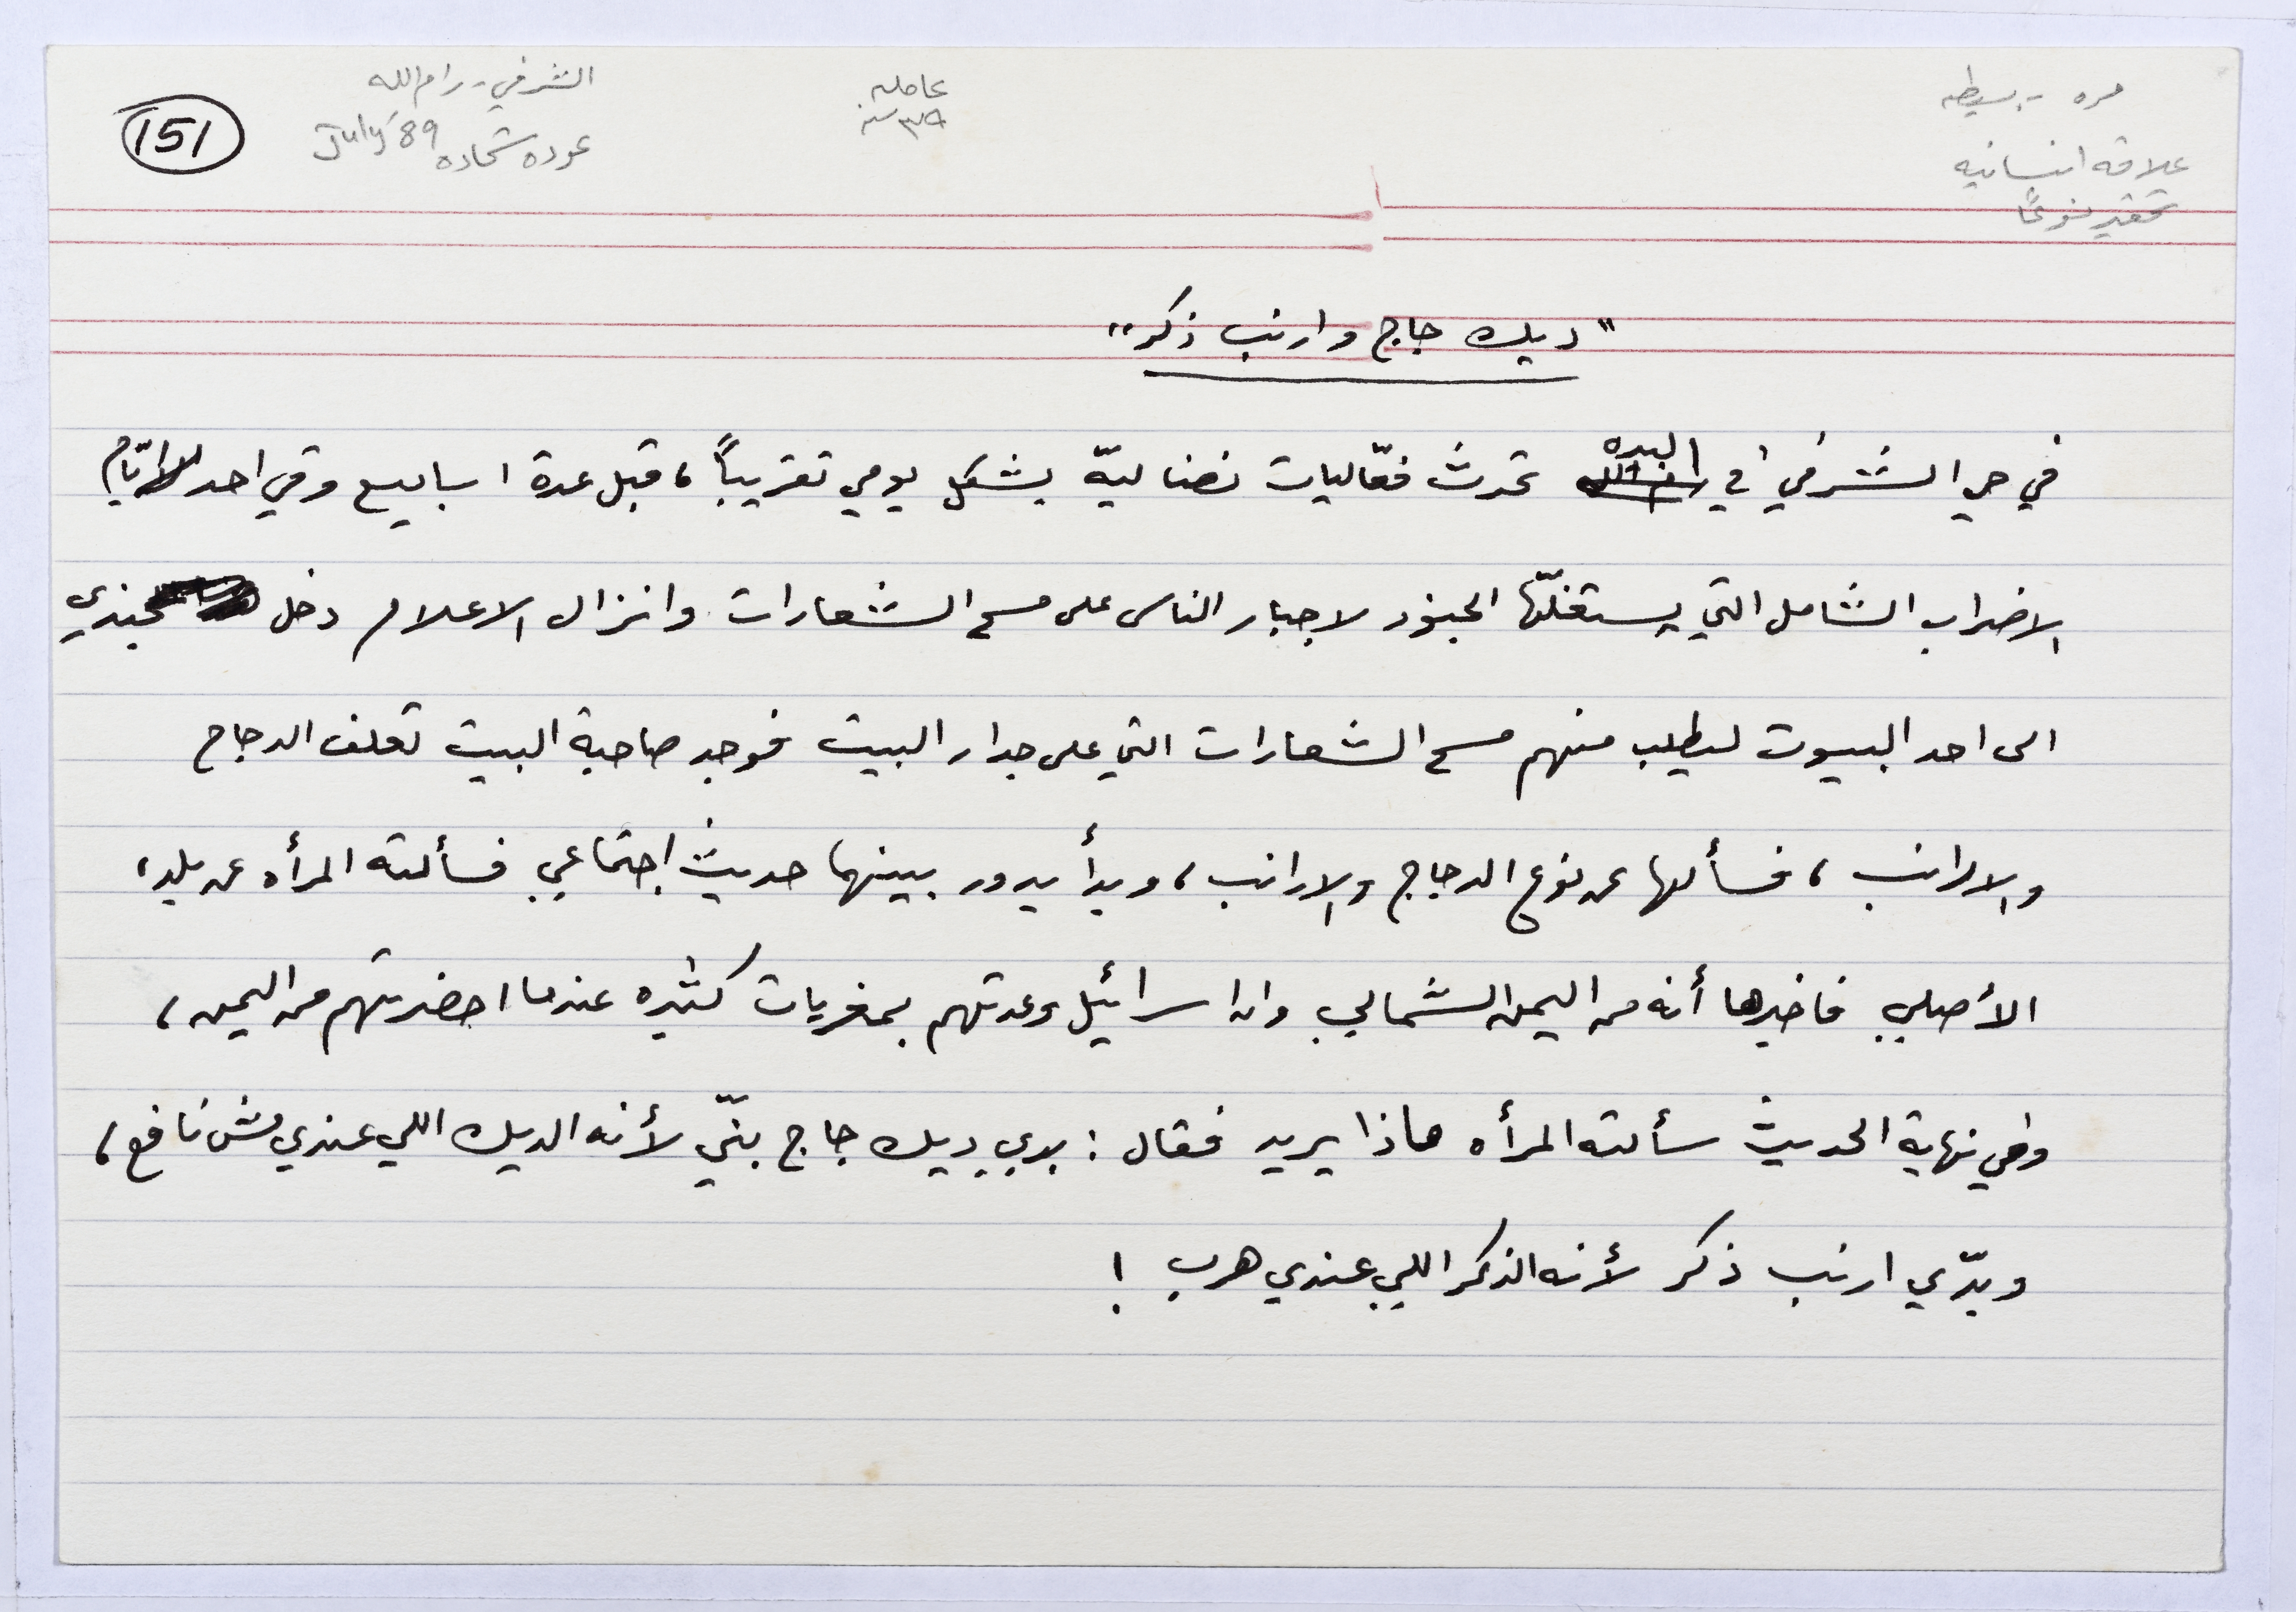 مره - بسيطه
علاقه انسانيه
تحقير نوعًا
عامله
٣٥ سنه
الشرفي - رام الله
عوده شحاده July '89
151
"ديك جاج وارنب ذكر"
في حي الشرفي في البيره تحدث فعّاليات نضاليّة بشكل يومي تقريباً، قبل عدة اسابيع وفي احد ايّام
الاضراب الشامل التي يستغلّها الجنود لاجبار الناس على مسح الشعارات وانزال الاعلام دخل جندي
الى احد البيوت ليطلب منهم مسح الشعارات التي على جدار البيت فوجد صاحبة البيت تعلف الدجاج
والارانب، فسألها عن نوع الدجاج والارانب، وبدأ يدور بينهما حديث اجتماعي فسألته المرأه عن بلده
الأصلي فاخبرها أنه من اليمن الشمالي وان اسرائيل وعدتهم بمغريات كثيره عندما احضرتهم من اليمن،
وفي نهاية الحديث سألته المرأه ماذا يريد فقال : بدي ديك جاج بنّي لأنه الديك اللي عندي مش نافع،
وبدّي ارنب ذكر لأنه الذكر اللي عندي هرب !